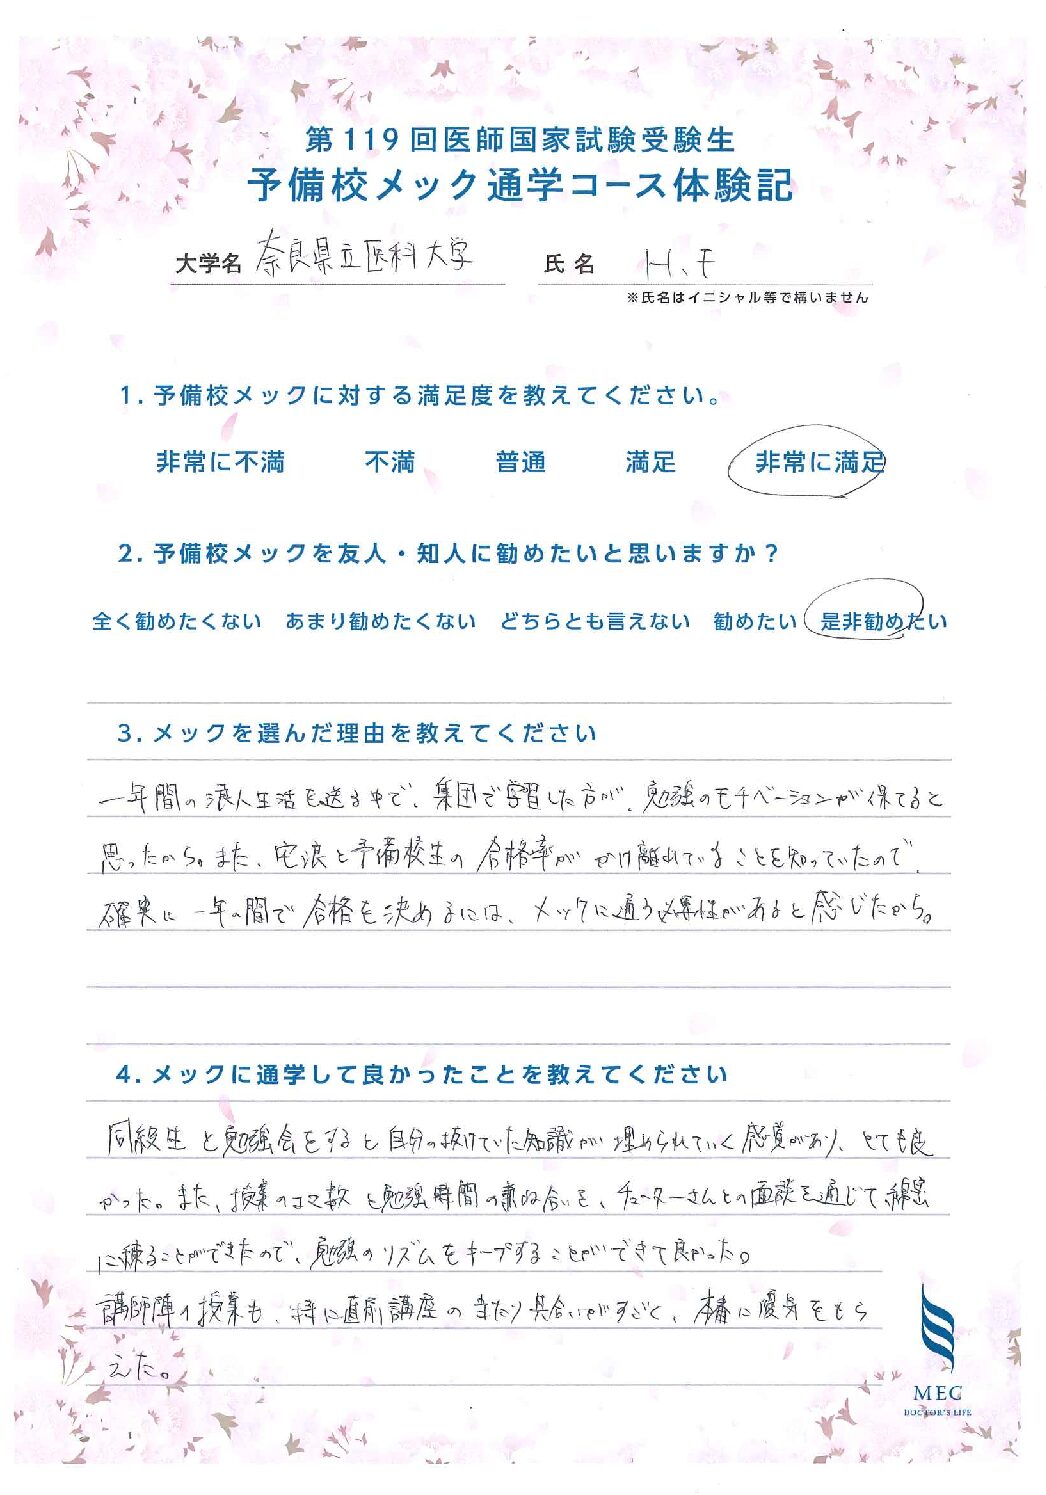 第119回医師国家試験受験生
予備校メック通学コース体験記
大学名 奈良県立医科大学 氏名 H、F
※氏名はイニシャル等で構いません
1.予備校メックに対する満足度を教えてください。
非常に不満 不満 普通 満足 非常に満足
2.予備校メックを友人・知人に勧めたいと思いますか？
全く勧めたくない あまり勧めたくない どちらとも言えない 勧めたい 是非勧めたい
3.メックを選んだ理由を教えてください
一年間の浪人生活を送る中で、集団で学習した方が、勉強のモチベーションが保てると
思ったから。また、宅浪と予備校生の合格率がかけ離れていることを知っていたので、
確実に一年の間で合格を決めるには、メックに通う必要性があると感じたから。
4.メックに通学して良かったことを教えてください
同級生と勉強会をすると自分の抜けていた知識が埋められていく感覚があり、とても良
かった。また、授業のコマ数と勉強時間の兼ね合いを、チューターさんとの面談を通じて綿密
に練ることができたので、勉強のリズムをキープすることができて良かった。
講師陣の授業も、特に直前講座の当たり具合いがすごく、本番に優勢をもら
えた。
MEC
DOCTOR'S LIFE